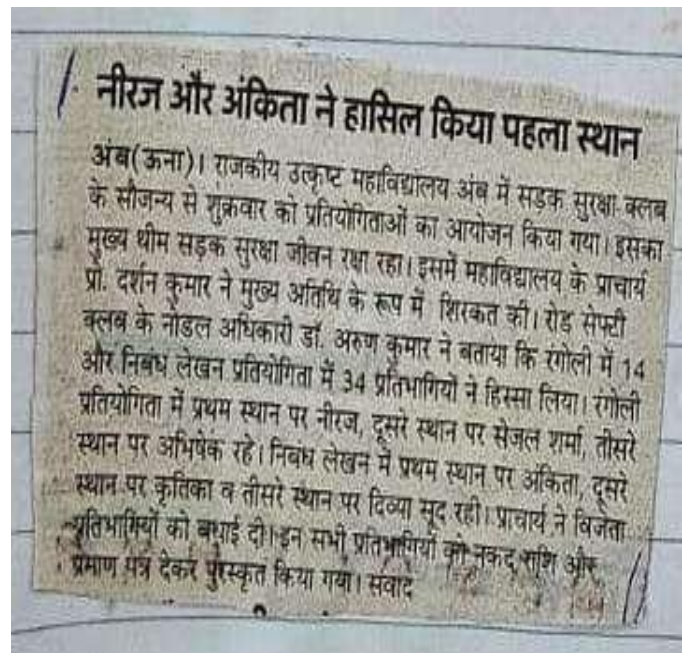 नीरज और अंकिता ने हासिल किया पहला स्थान
अंब(ऊना)। राजकीय उत्कृष्ट महाविद्यालय अंब में सड़क सुरक्षा क्लब
के सौजन्य से शुक्रवार को प्रतियोगिताओं का आयोजन किया गया। इसका
मुख्य थीम सड़क सुरक्षा जीवन रक्षा रहा। इसमें महाविद्यालय के प्राचार्य
प्रो. दर्शन कुमार ने मुख्य अतिथि के रूप में शिरकत की। रोड सेफ्टी
क्लब के नोडल अधिकारी डॉ. अरुण कुमार ने बताया कि रंगोली में 14
और निबंध लेखन प्रतियोगिता में 34 प्रतिभागियों ने हिस्सा लिया। रंगोली
प्रतियोगिता में प्रथम स्थान पर नीरज, दूसरे स्थान पर सेजल शर्मा, तीसरे
स्थान पर अभिषेक रहे। निबंध लेखन में प्रथम स्थान पर अंकिता, दूसरे
स्थान पर कृतिका व तीसरे स्थान पर दिव्या सूद रही। प्राचार्य ने विजेता
प्रतिभागियों को बधाई दी। इन सभी प्रतिभागियों को नकद राशि और
प्रमाण पत्र देकर पुरस्कृत किया गया। संवाद